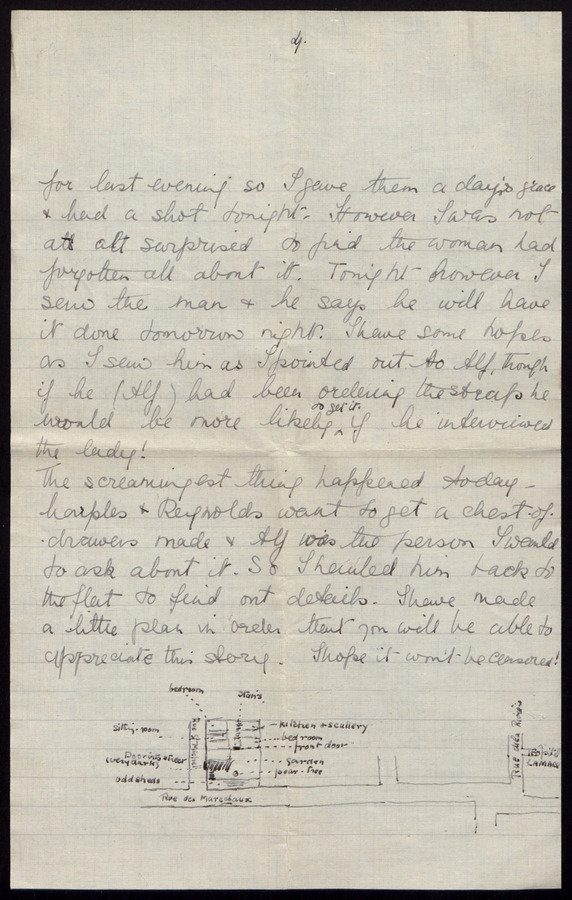 4.
for last evening so I gave them a day's grace
& had a shot tonight. However I was not
at all surprised to find the woman had
forgotten all about it. Tonight however I
seen the man & he says he will have
it done tomorrow night. I have some hopes
as I seen him as I pointed out to Alf, though
if he (Alf) had been ordering the straps he
would be more likely to get it if he interviewed
the lady!
The screamingest thing happened today -
& Reynolds want to get a chest-of-
-drawers made & Alf was the person I would
to ask about it. So I hauled him back to
the flat to find out details. I have made
a little plan in order that you will be able to
appreciate this story. I hope it won't be censored!
bedroom
stairs
Sitting-room
kitchen & scullery
bedroom
front door
(very dark)
garden
odd sheds
pear-tree
Rue des
Rue des